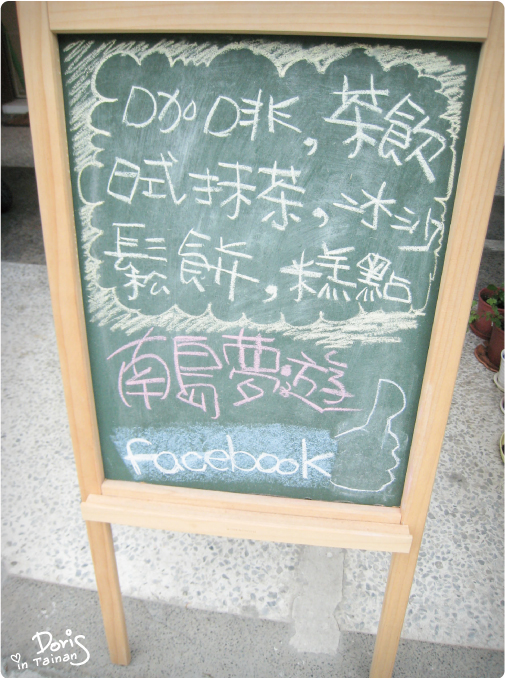 咖啡,茶飲
日式抹茶,冰沙
鬆餅,糕點
南島夢遊
facebook
Doris
in Tainan